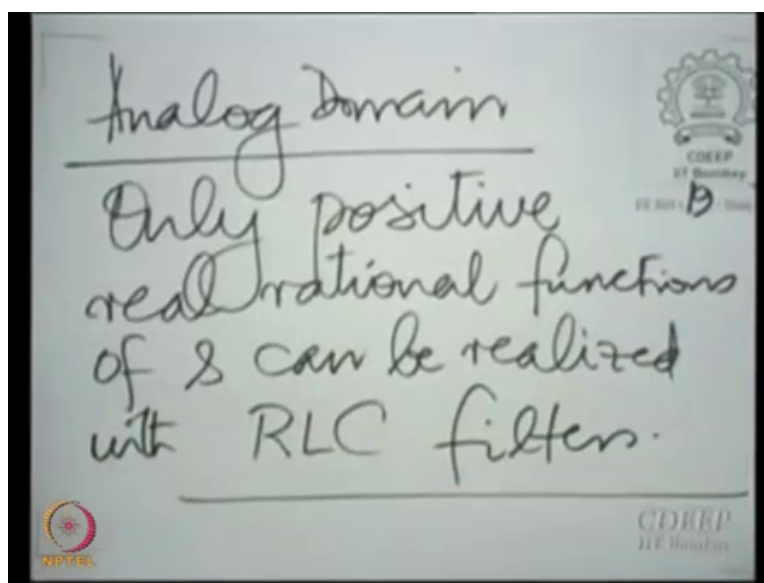 Analog Domain
CDEEP
IIT Bombay
13
Only positive
real rational functions
of s can be realized
with RLC filters.
NPTEL
CDEEP
IIT Bombay